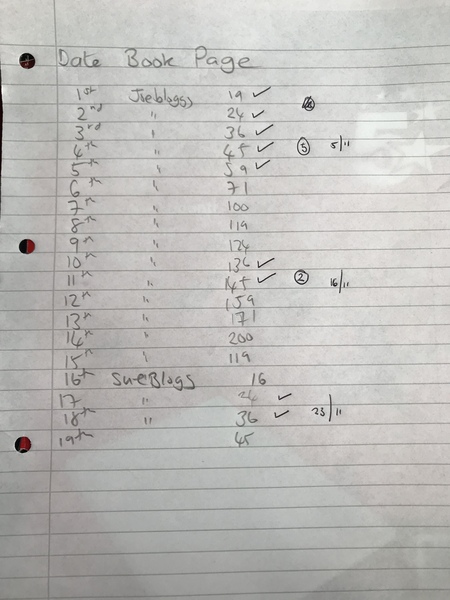 Date Book Page
1st Joeblogs 19 ✓
2nd " 24 ✓
3rd " 36 ✓
4th " 45 ✓ 5 5/11
5th " 59 ✓
6th " 71
7th " 100
8th " 119
9th " 124
10th " 136 ✓
11th " 145 ✓ 2 16/11
12th " 159
13th " 171
14th " 200
15th " 119
16th SueBlogs 16
17 " 24 ✓
18th " 36 ✓ 23/11
19th 45